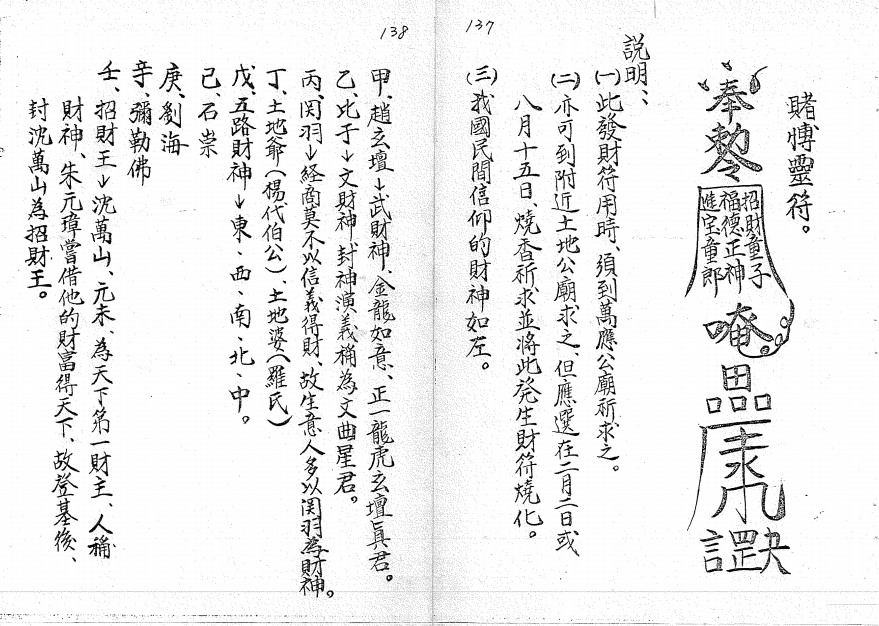 137
賭博靈符。
奉勅
招財童子
福德正神
進宝童郎
唵
説明：
(一)此發財符用時、須到萬應公廟祈求之。
(二)亦可到附近土地公廟求之、但應選在二月二日或
八月十五日、燒香祈求並將此発生財符燒化。
(三)我國民間信仰的財神如左。
138
甲、趙玄壇→武財神、金龍如意、正一龍虎玄壇眞君。
乙、比干→文財神、封神演義稱為文曲星君。
丙、関羽→経商莫不以信義得財、故生意人多以関羽為財神。
丁、土地爺(楊代伯公)、土地婆(羅氏)
戊、五路財神→東、西、南、北、中。
己、石崇
庚、劉海
辛、彌勒佛
壬、招財王→沈萬山、元末、為天下第一財主、人稱
財神、朱元璋嘗借他的財富得天下、故登基後、
封沈萬山為招財王。